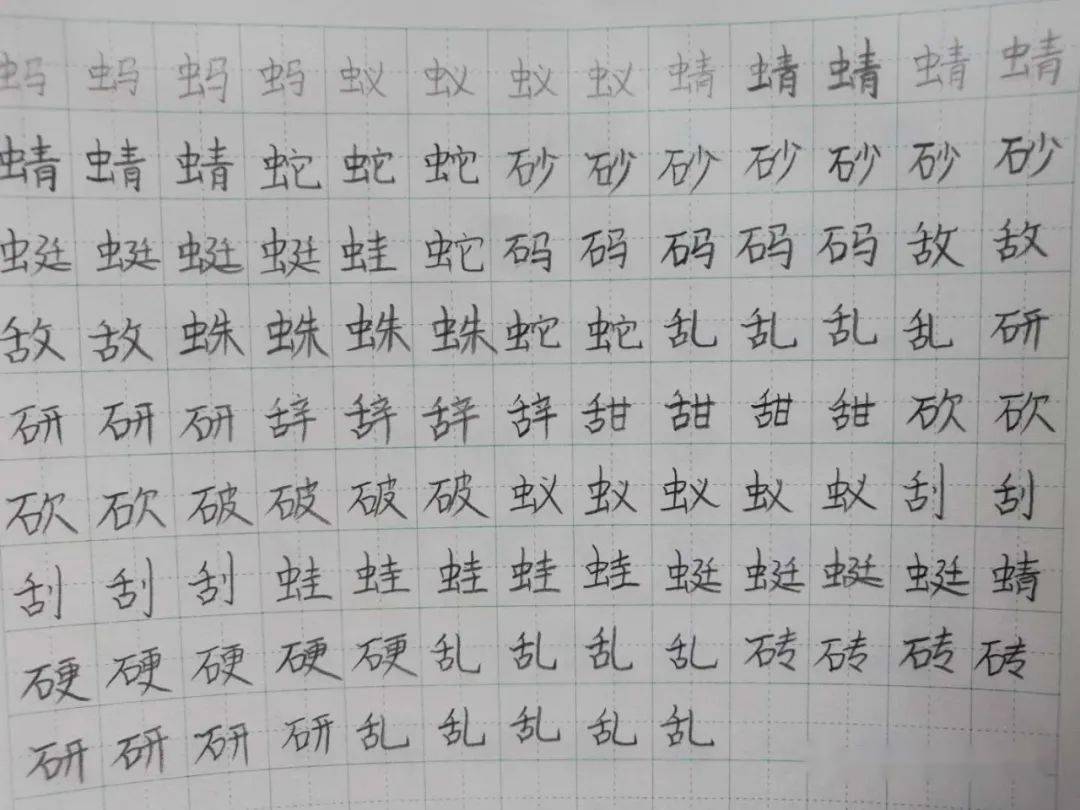 蚂蚂蚂蚂蚁蚁蚁蚁蜻蜻蜻蜻蜻
蜻蜻蜻蛇蛇蛇砂砂砂砂砂砂砂
蜓蜓蜓蜓蛙蛇码码码码码敌敌
敌敌蛛蛛蛛蛛蛇蛇乱乱乱乱研
研研研辞辞辞辞甜甜甜甜砍砍
砍砍破破破破蚁蚁蚁蚁蚁刮刮
刮刮刮蛙蛙蛙蛙蛙蜓蜓蜓蜓蜻
硬硬硬硬硬乱乱乱乱砖砖砖砖
研研研研乱乱乱乱乱